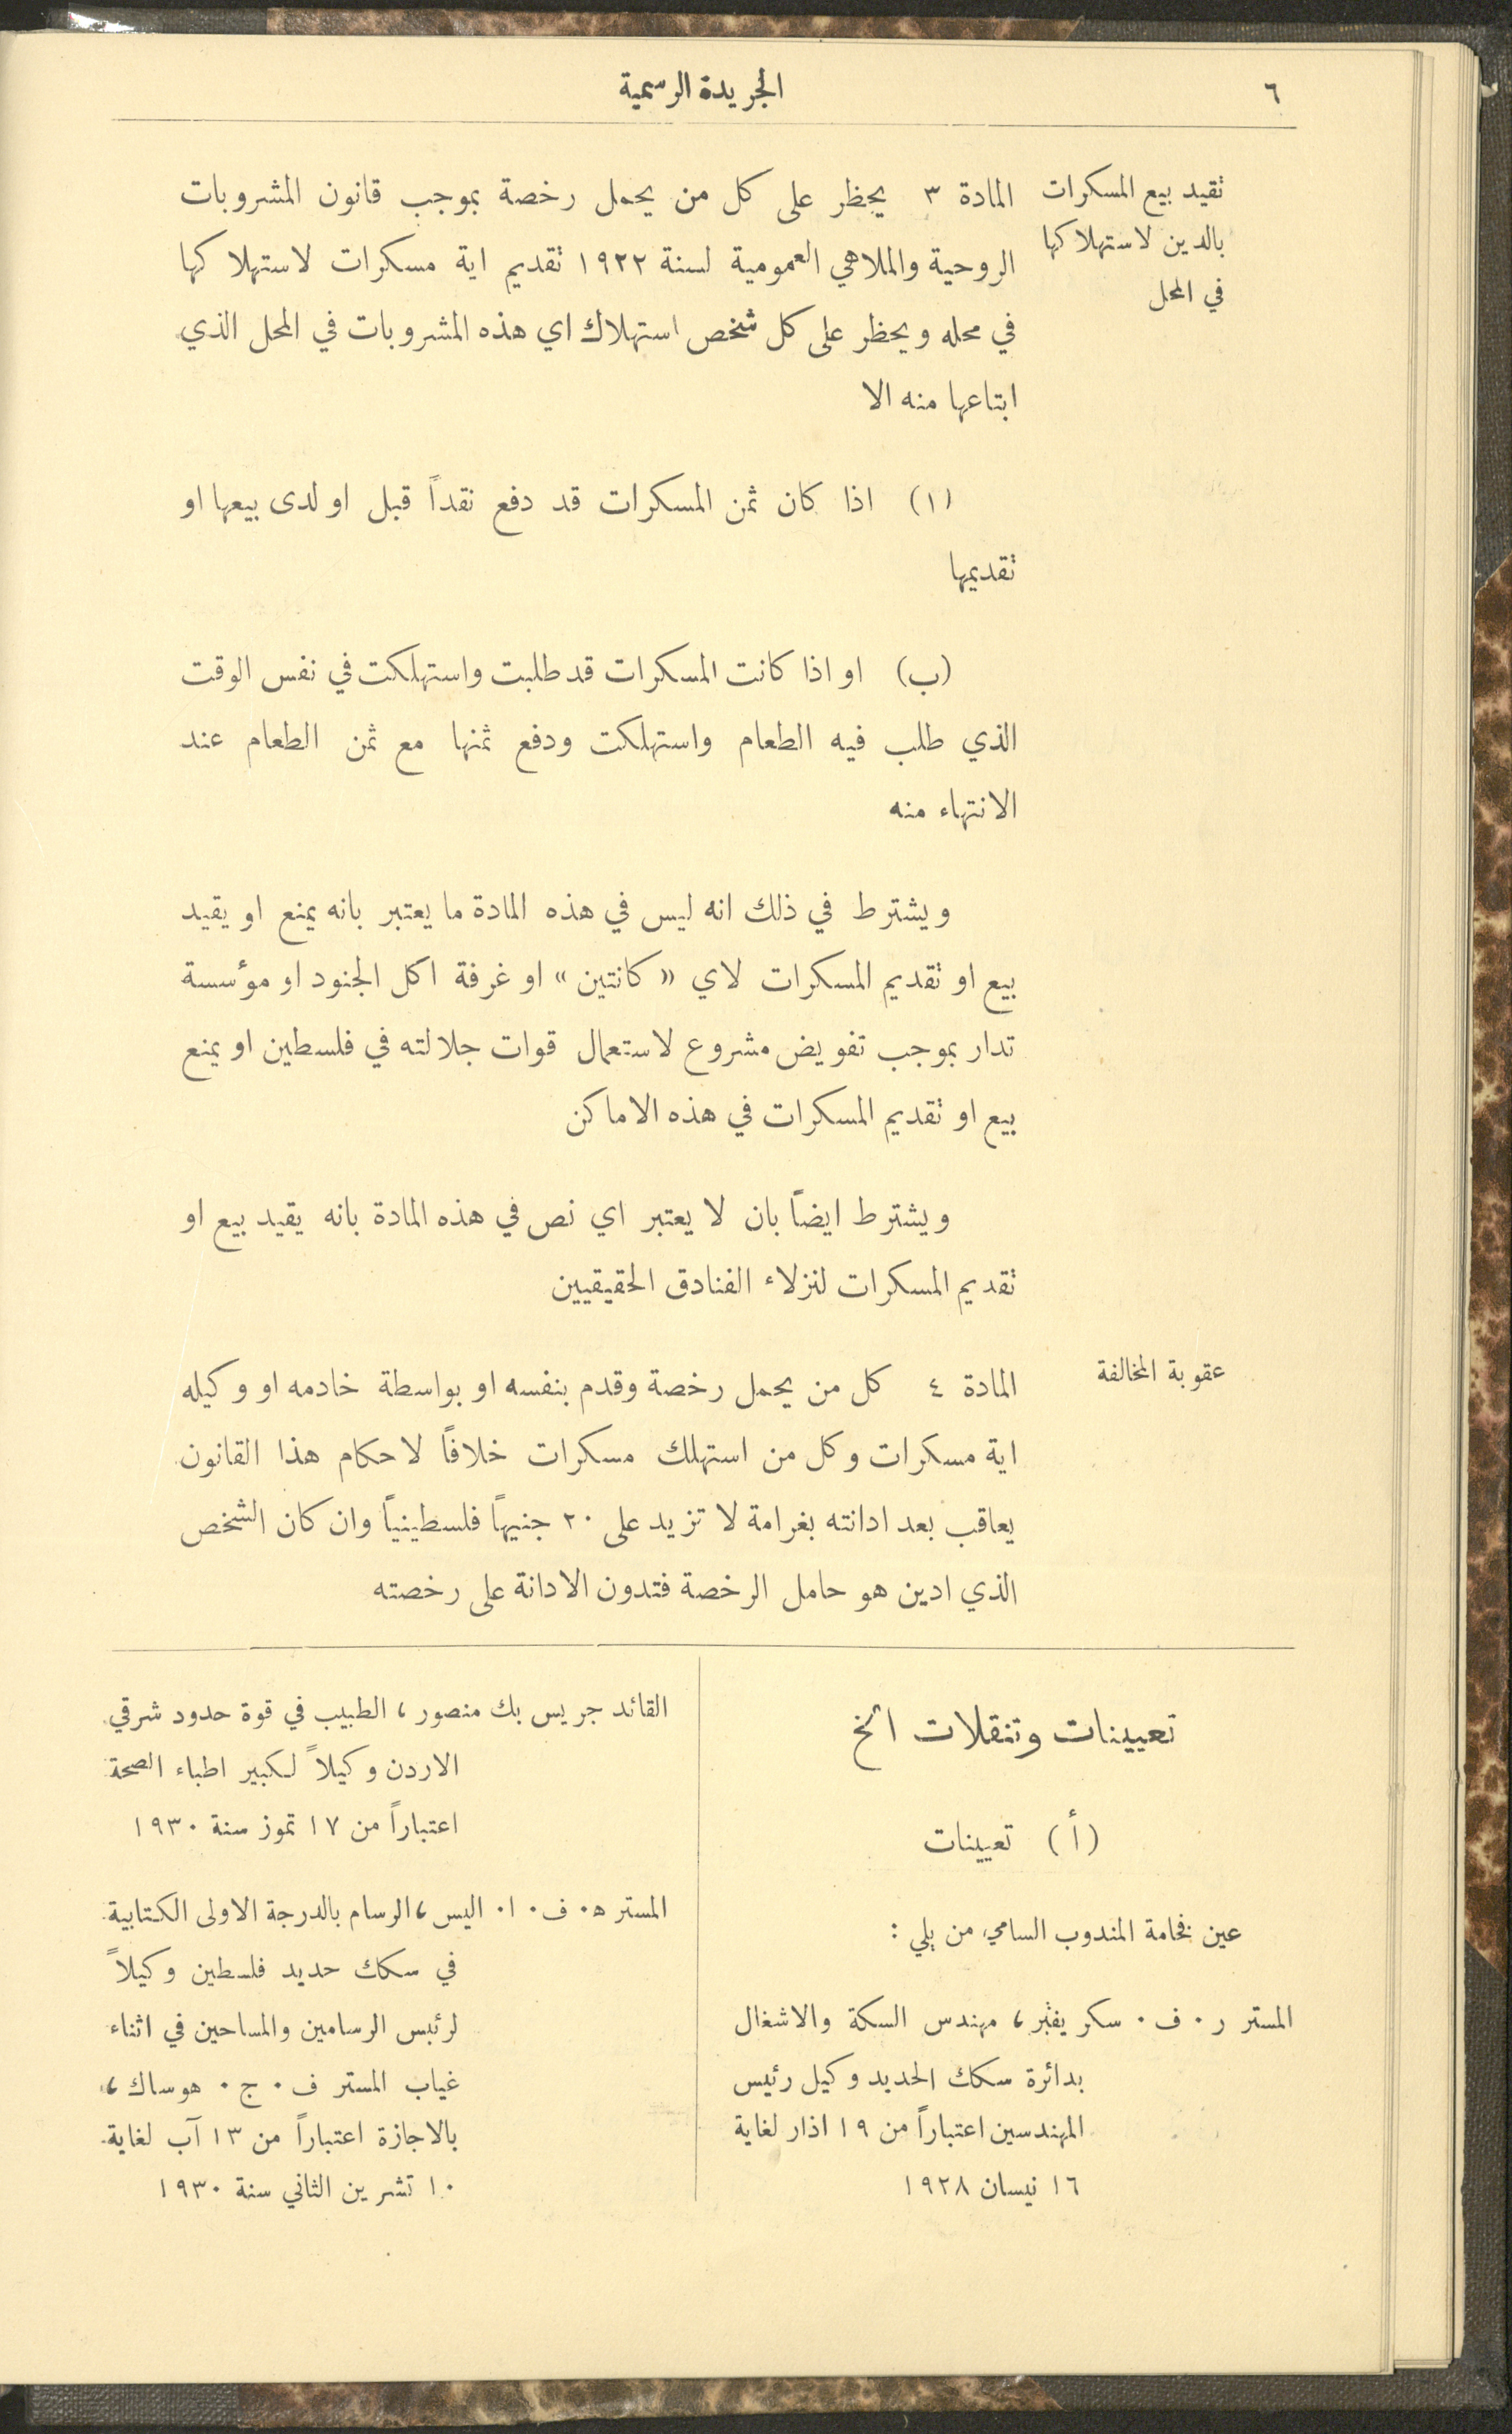 ٦
الجريدة الرسمية
تقيد بيع المسكرات
بالدين لاستهلاكها
في المحل
المادة ٣ يحظر على كل من يحمل رخصة بموجب قانون المشروبات
الروحية والملاهي العمومية لسنة ١٩٢٢ تقديم اية مسكرات لاستهلاكها
في محله ويحظر على كل شخص استهلاك اي هذه المشروبات في المحل الذي
ابتاعها منه الا
(١) اذا كان ثمن المسكرات قد دفع نقداً قبل او لدى بيعها او
تقديمها
(ب) او اذا كانت المسكرات قد طلبت واستهلكت في نفس الوقت
الذي طلب فيه الطعام واستهلكت ودفع ثمنها مع ثمن الطعام عند
الانتهاء منه
ويشترط في ذلك انه ليس في هذه المادة ما يعتبر بانه يمنع او يقيد
بيع او تقديم المسكرات لاي «كانتين» او غرفة اكل الجنود او مؤسسة
تدار بموجب تفويض مشروع لاستعمال قوات جلالته في فلسطين او يمنع
بيع او تقديم المسكرات في هذه الاماكن
ويشترط ايضاً بان لا يعتبر اي نص في هذه المادة بانه يقيد بيع او
تقديم المسكرات لنزلاء الفنادق الحقيقيين
عقوبة المخالفة
المادة ٤ كل من يحمل رخصة وقدم بنفسه او بواسطة خادمه او وكيله
اية مسكرات وكل من استهلك مسكرات خلافاً لاحكام هذا القانون
يعاقب بعد ادانته بغرامة لا تزيد على ٢٠ جنيهاً فلسطينياً وان كان الشخص
الذي ادين هو حامل الرخصة فتدون الادانة على رخصته
تعيينات وتنقلات الخ
(أ) تعيينات
عين فخامة المندوب السامي من يلي :
المستر ر٠ ف٠ سكريفنر، مهندس السكة والاشغال
بدائرة سكك الحديد وكيل رئيس
المهندسين اعتباراً من ١٩ اذار لغاية
١٦ نيسان ١٩٢٨
القائد جريس بك منصور، الطبيب في قوة حدود شرقي
الاردن وكيلاً لكبير اطباء الصحة
اعتباراً من ١٧ تموز سنة ١٩٣٠
المستر ه٠ ف٠ ا٠ اليس، الرسام بالدرجة الاولى الكتابية
في سكك حديد فلسطين وكيلاً
لرئيس الرسامين والمساحين في اثناء
غياب المستر ف٠ ج٠ هوساك،
بالاجازة اعتباراً من ١٣ آب لغاية
١٠ تشرين الثاني سنة ١٩٣٠